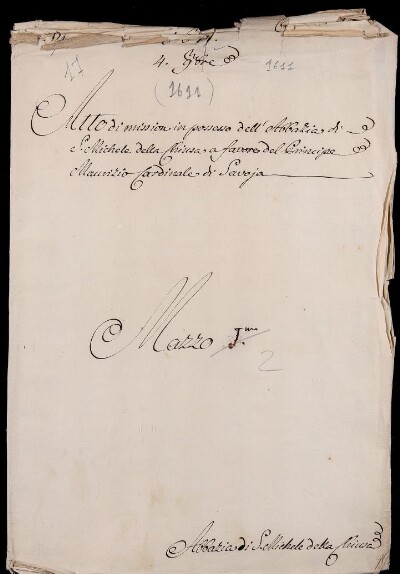 17
4. 9bre
1611
(1611)
Atto di mission in possesso dell'Abbazia di
S. Michele della Chiusa a favore del Principe
Maurizio Cardinale di Savoja
Mazzo 1.mo
2
Abbazia di S. Michele della Chiusa